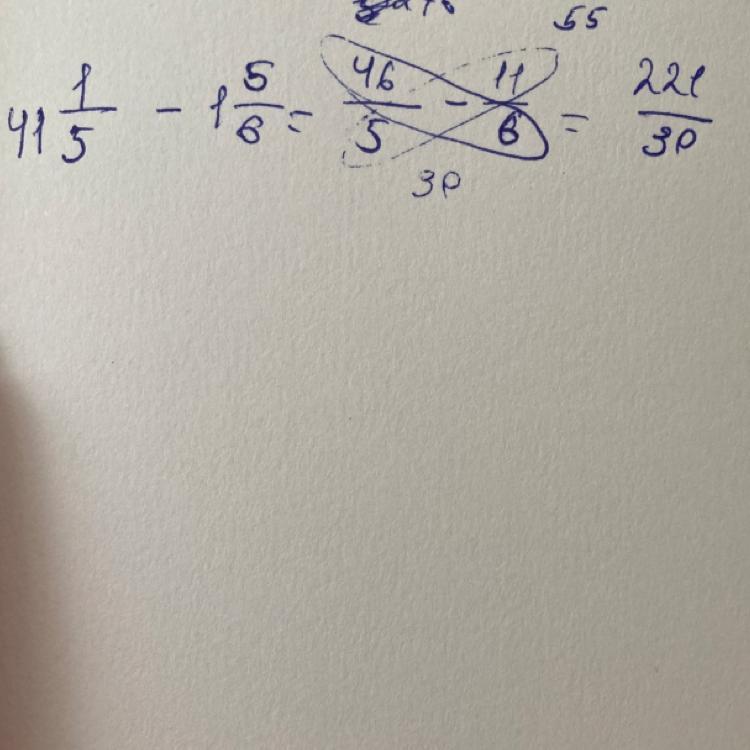 55
41 1/5 - 1 5/6 = 46/5 - 11/6 = 221/30
30